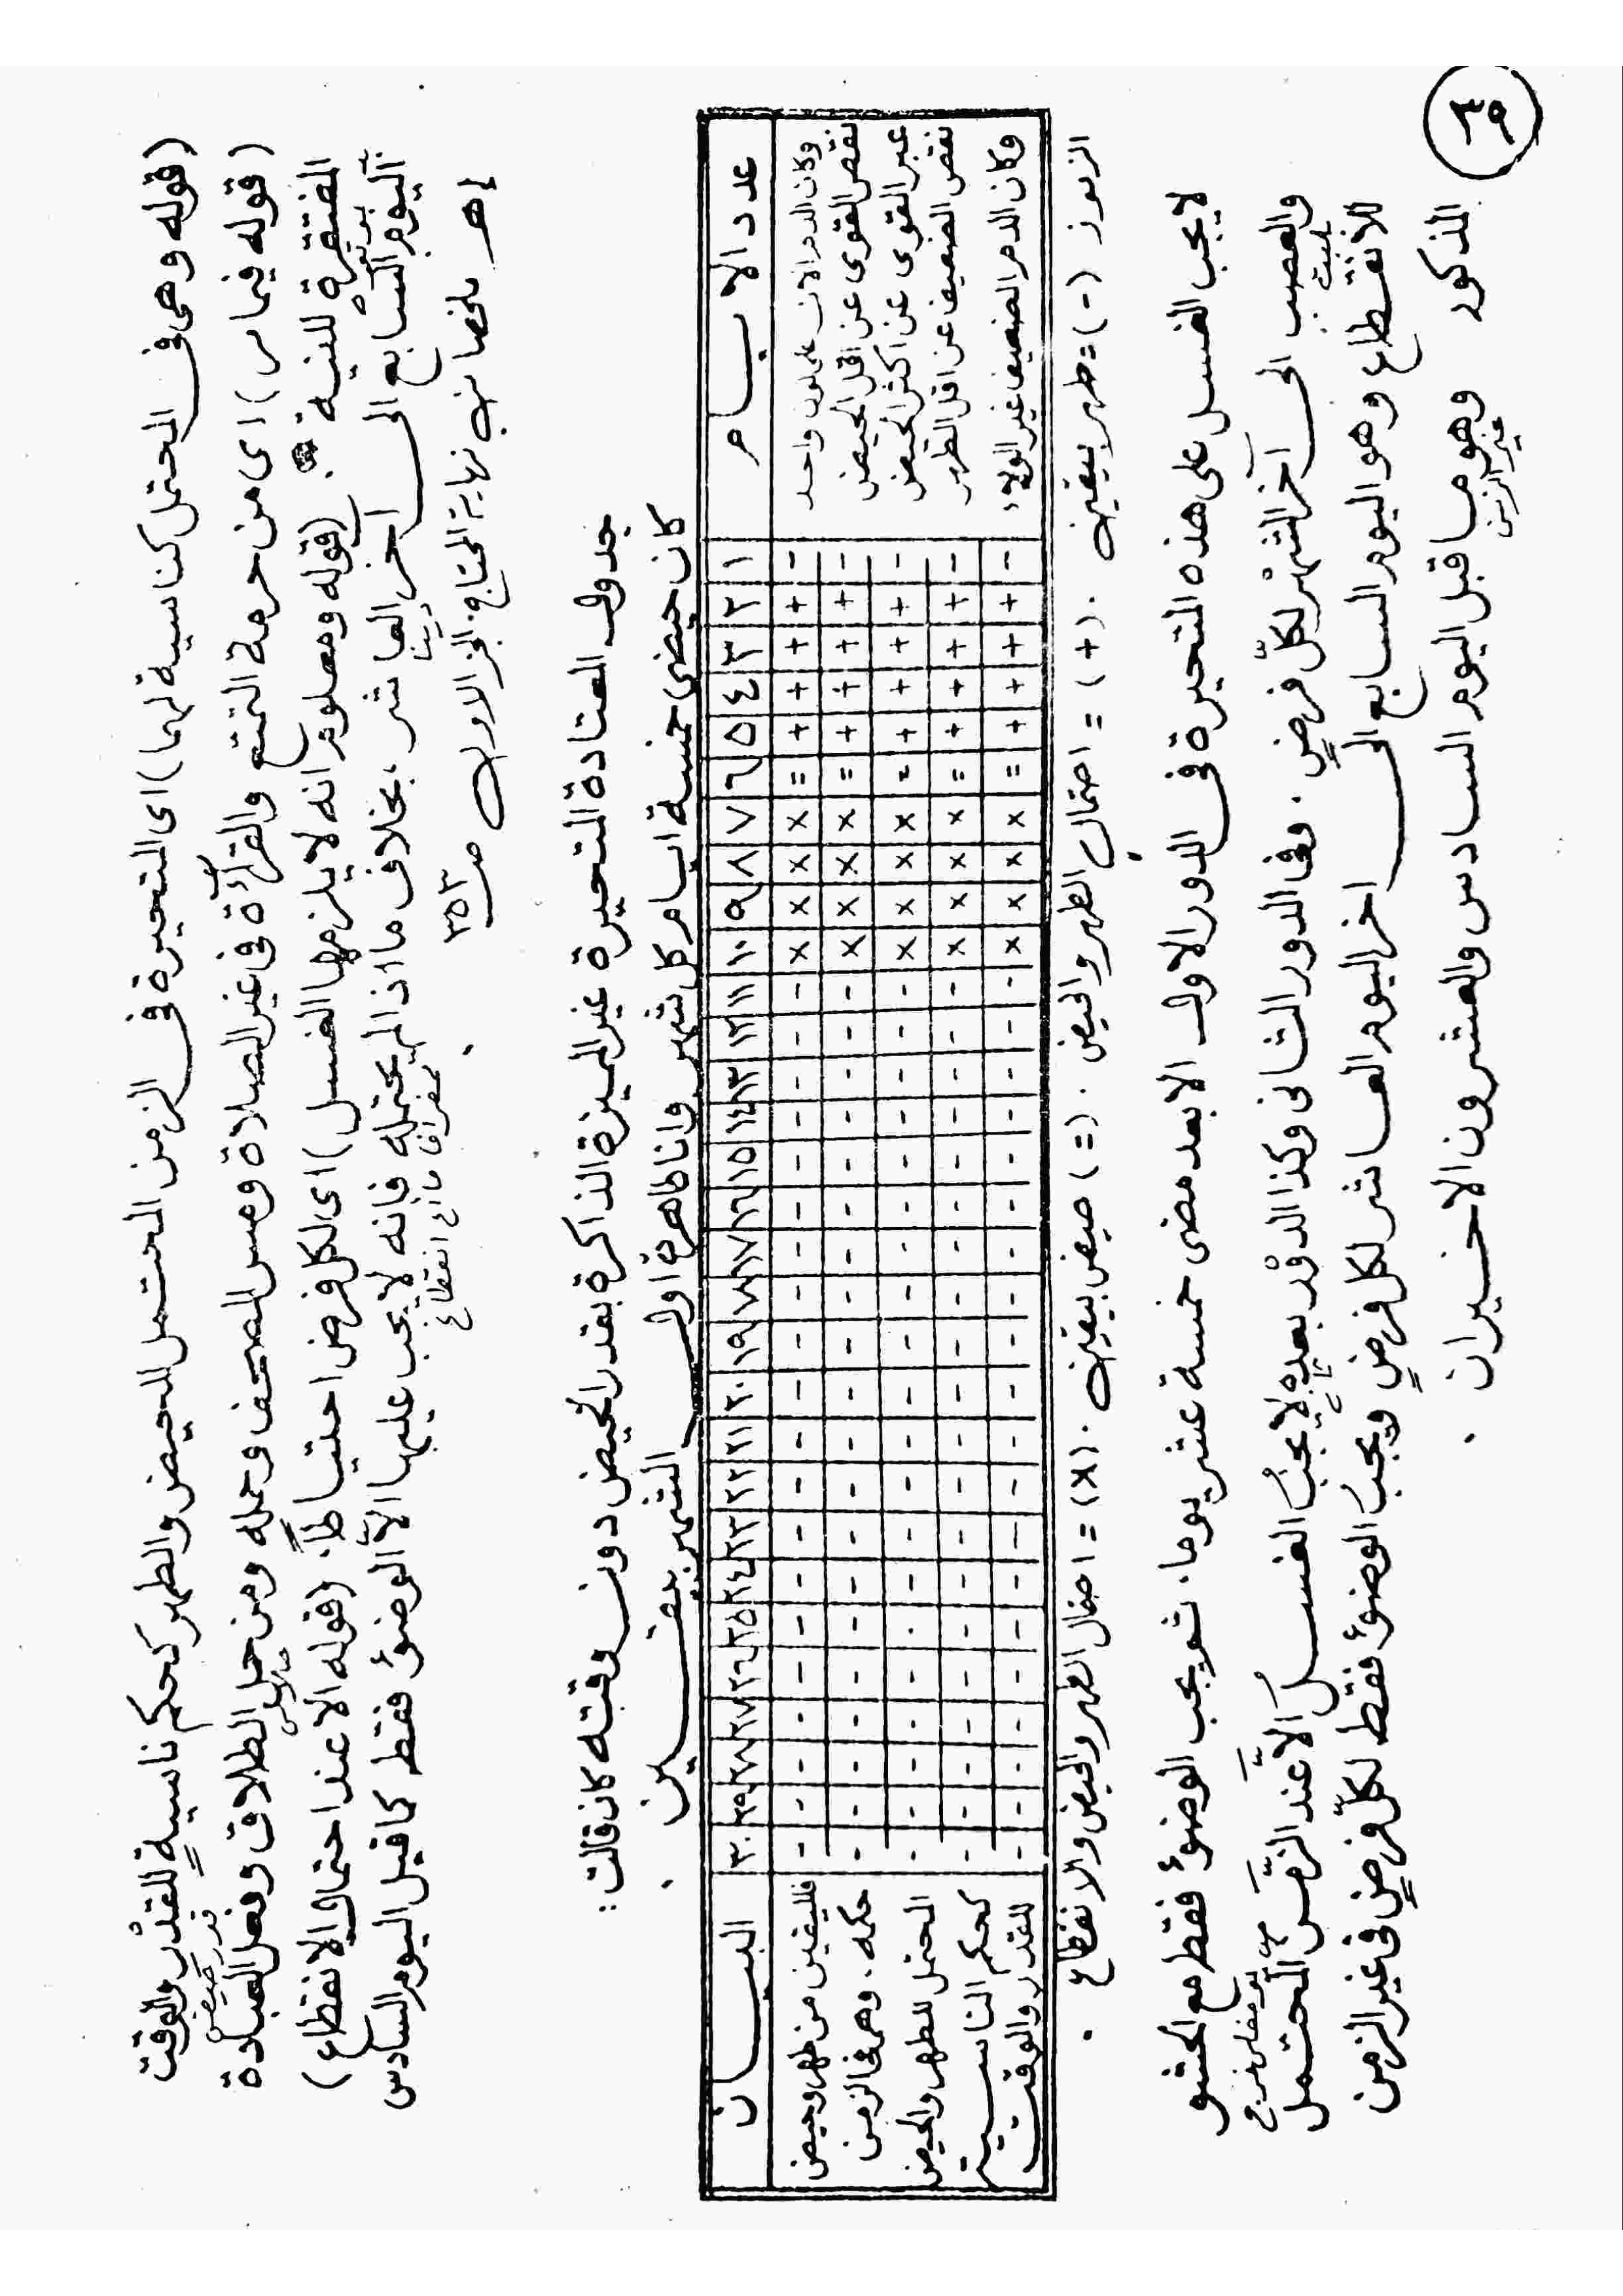 ٣٩
(قوله وهى فى المحتمل كناسية لهما) اى المتحيرة فى الزمن المحتمل للحيض والطهر كحكم ناسيةٍ للقدْرِ والوقت
(قوله فيما مر) اى من حرمة التمتع والقرآءة فى غير الصلاة ومس المصحف وحمله ومن حل الطلاق وفعل العبادة
قدر حيض
المفتقرة للنية. (قوله ومعلوم انه لا يلزمها الغسل) اى لكل فرض احتياطاً. (قوله الا عند احتمال الانقطاع)
اليوم السابع الى آخر العاشر، بخلاف ما اذا لم يحتمله فانه لا يجب عليها الاّ الوضوءُ فقط كما قبل اليوم السادس
إهـ ملخصا نهاية المحتاج. الجزء الاول صـ ٣٥٣
جدول المعتادة المتحيرة غير المميزة الذاكرة بقدر الحيض دون وقته كان قالت:
كان حيضى خمسة ايام كل شهر وانا طاهرة اول الشهر بيقين.
عدد الايام | ١ | ٢ | ٣ | ٤ | ٥ | ٦ | ٧ | ٨ | ٩ | ١٠ | ١١ | ١٢ | ١٣ | ١٤ | ١٥ | ١٦ | ١٧ | ١٨ | ١٩ | ٢٠ | ٢١ | ٢٢ | ٢٣ | ٢٤ | ٢٥ | ٢٦ | ٢٧ | ٢٨ | ٢٩ | ٣٠ | البيان
وكان الدم الان على لون واحد | - | + | + | + | + | = | × | × | × | × | - | - | - | - | - | - | - | - | - | - | - | - | - | - | - | - | - | - | - | - | فلليقين من طهر وحيض
نقص القوى عن اقل الحيض | - | + | + | + | + | = | × | × | × | × | - | - | - | - | - | - | - | - | - | - | - | - | - | - | - | - | - | - | - | - | حكمه. وهى فى الزمن
عبر القوى عن اكثر الحيض | - | + | + | + | + | = | × | × | × | × | - | - | - | - | - | - | - | - | - | - | - | - | - | - | - | - | - | - | - | - | المحتمل للطهر والحيض
نقص الضعيف عن اقل الطهر | - | + | + | + | + | = | × | × | × | × | - | - | - | - | - | - | - | - | - | - | - | - | - | - | - | - | - | - | - | - | كحكم الناسية
وكان الدم الضعيف غير الولاء | - | + | + | + | + | = | × | × | × | × | - | - | - | - | - | - | - | - | - | - | - | - | - | - | - | - | - | - | - | - | للقدر والوقت
الرموز (-) = طهر بيقين. (+) = احتمال الطهر والحيض. (=) حيض بيقين. (×) = احتمال الطهر والحيض والانقطاع.
لا يجب الغسل على هذه المتحيرة فى الدور الاول الا بعد مضى خمسة عشر يوما. ثم يجب الوضوءُ فقط مع الحشو
والعصب الى آخر الشهْر لكلّ فرضٍ. وفى الدور الثانى وكذا الدوْر بعده لا يجبُ الغسلُ الاَّ عند الزَّمن المحتمل
للانقطاع وهو اليوم السابع الى اخر اليوم العاشر لكل فرضٍ ويجبُ الوضوءُ فقط لكلّ فرضٍ فى غير الزمن
المذكور وهو ما قبل اليوم السادس والعشرون الاخيران.
غير الزمن